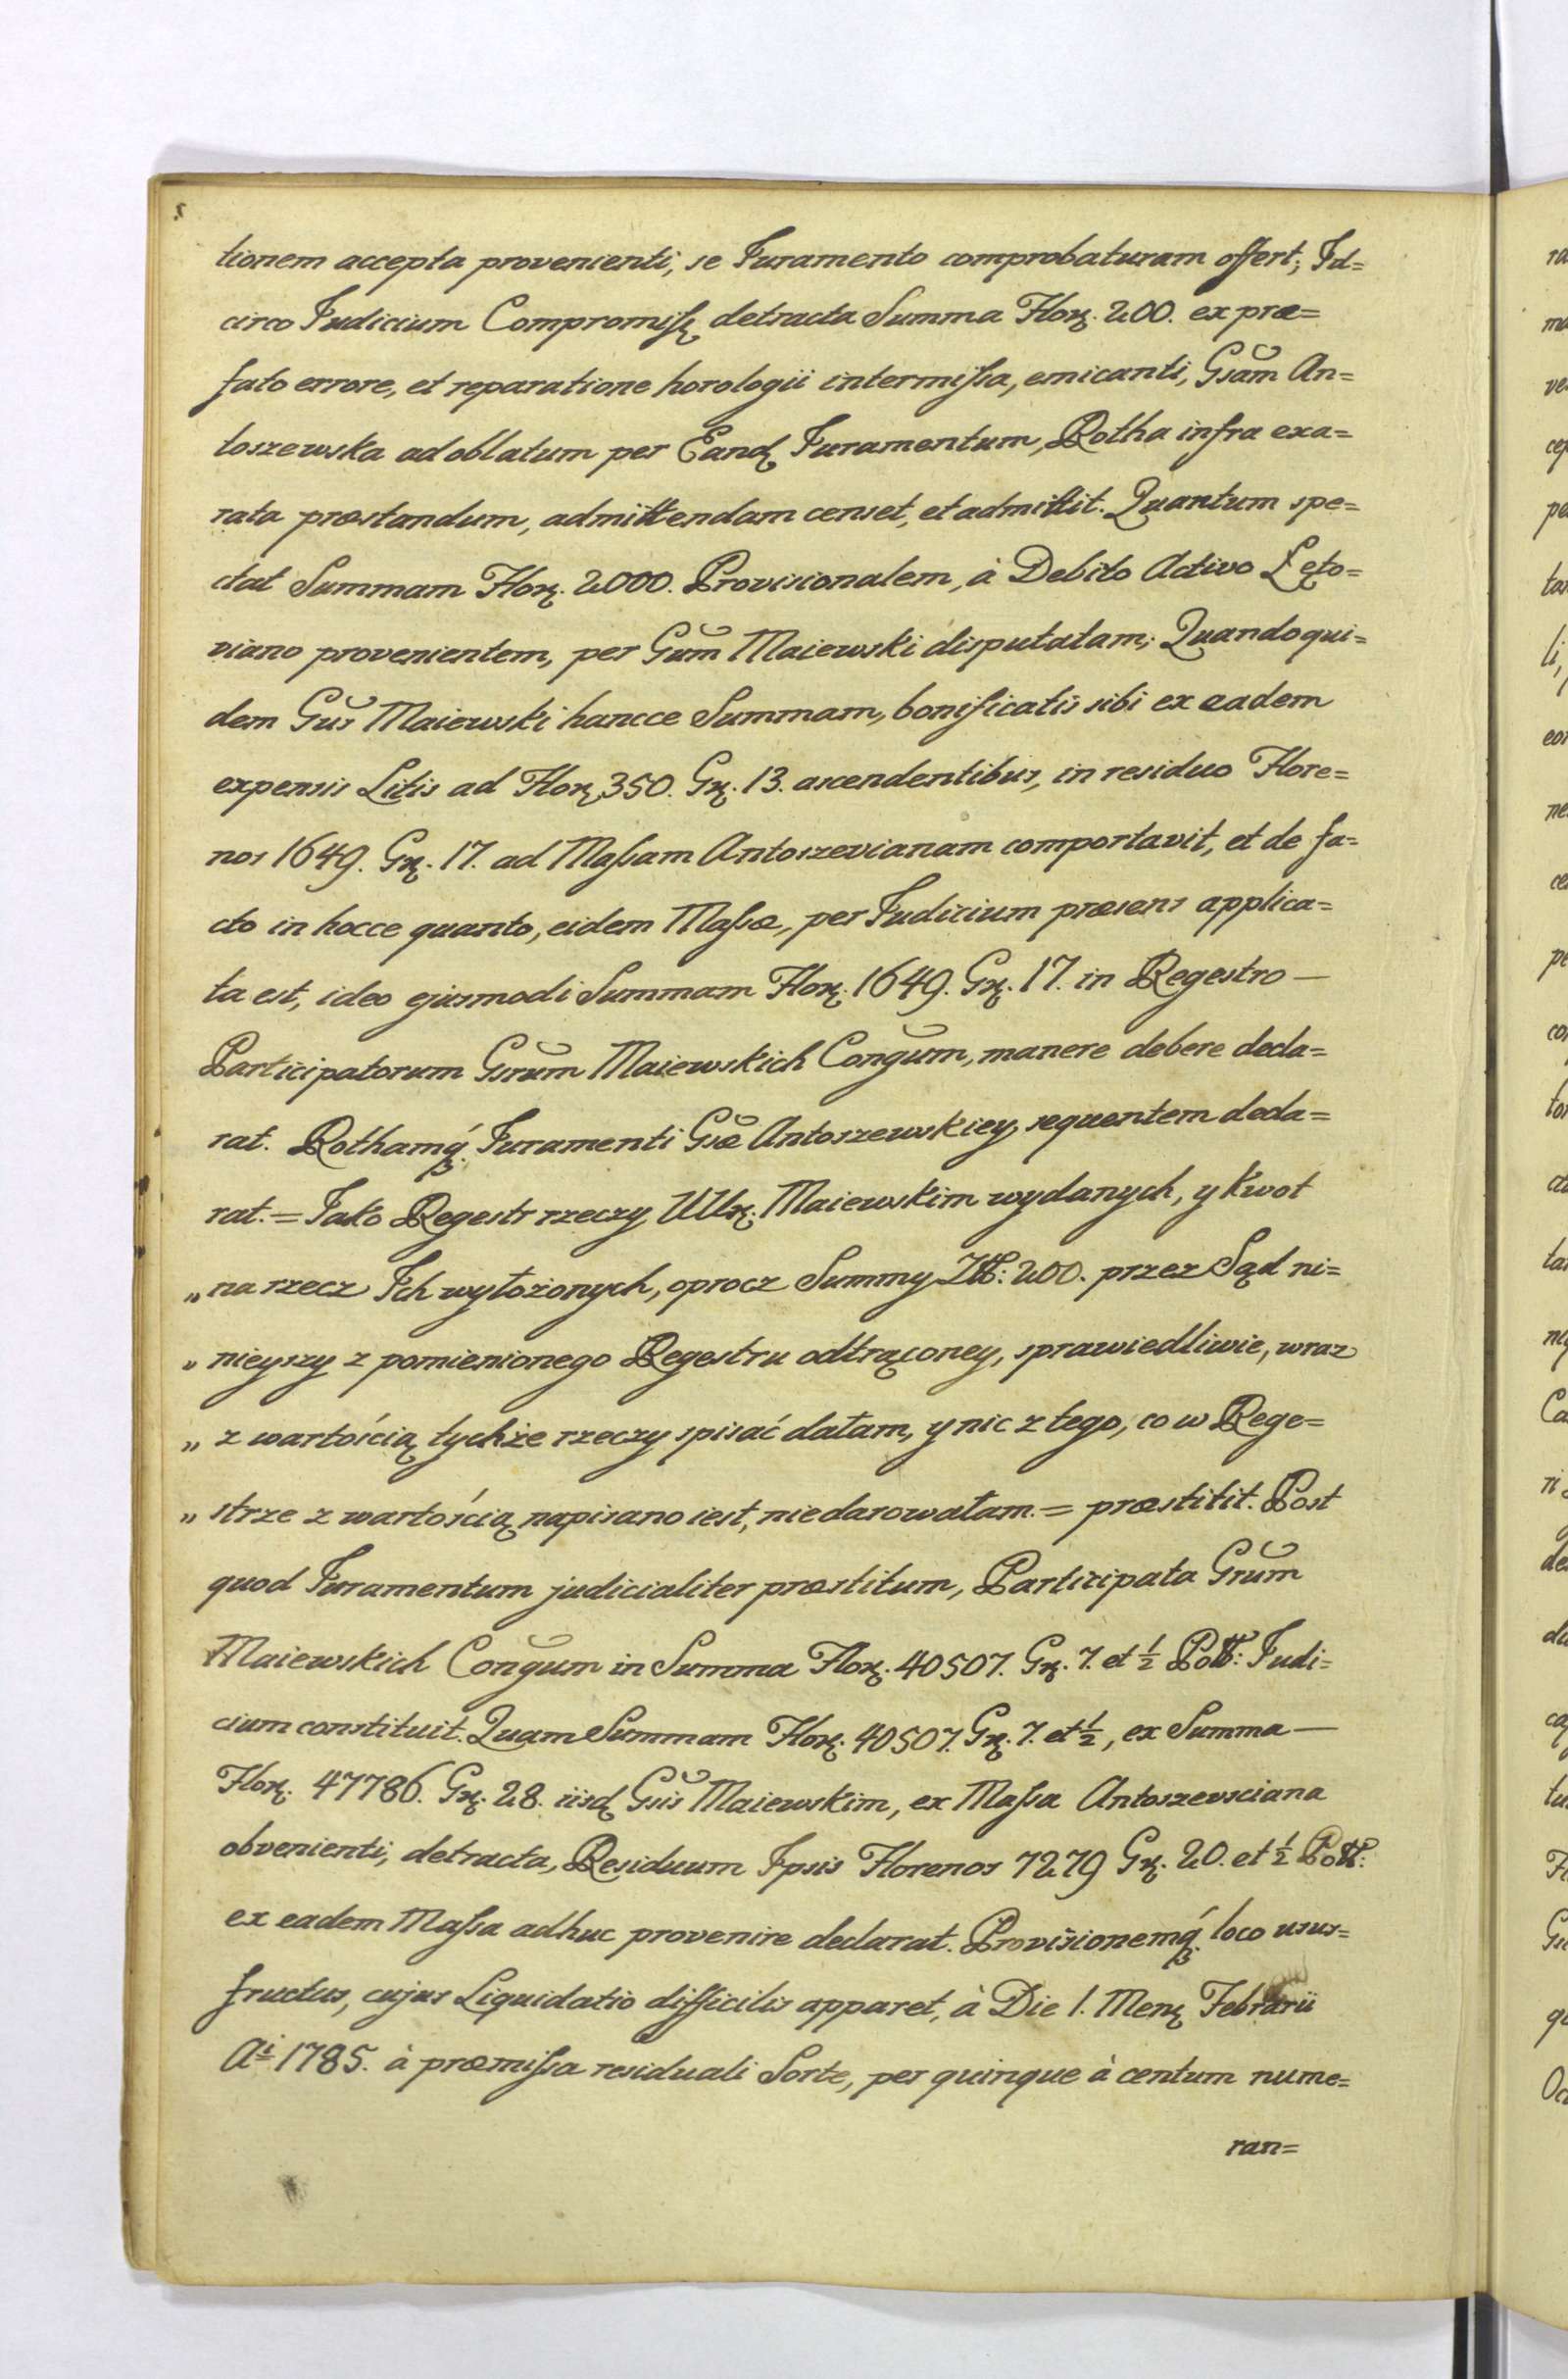 tionem accepta provenienti, se Juramento comprobaturam offert; Id=
circo Judicium Compromiſs: detracta Summa Flor: 200. ex præ=
fato errore, et reparatione horologii intermiſsa, emicanti, Gsam An=
toszewska ad oblatum per Eand: Juramentum, Rotha infra exa=
rata præstandum, admittendam censet, et admittit. Quantum spe=
ctat Summam Flor: 2000. Provisionalem, à Debito Activo Łęto=
viano provenientem, per Gum Maiewski disputatam; Quandoqui=
dem Gus Maiewski hancce Summam, bonificatis sibi ex eadem
expensis Litis ad Flor: 350. Gr: 13. ascendentibus, in residuo Flore=
nos 1649. Gr: 17. ad Maſsam Antoszevianam comportavit, et de fa=
cto in hocce quanto, eidem Maſsæ, per Judicium præsens applica=
ta est, ideo ejusmodi Summam Flor: 1649. Gr: 17. in Regestro —
Participatorum Gsrum Maiewskich Congum, manere debere decla=
rat. Rothamq́: Juramenti Gsæ Antoszewskiey, sequentem decla=
rat. = Jako Regestr rzeczy UUr: Maiewskim wydanych, y kwot
„ na rzecz Ich wyłożonych, oprocz Summy Złł: 200. przez Sąd ni=
„ nieyszy z pomienionego Regestru odtrąconey, sprawiedliwie, wraz
„ z wartością tychże rzeczy spisać dałam, y nic z tego, co w Rege=
„ strze z wartością napisano iest, nie darowałam. = præstitit. Post
quod Juramentum judicialiter præstitum, Participata Grum
Maiewskich Congum in Summa Flor: 40507. Gr: 7. et ½ Poll: Judi=
cium constituit. Quam Summam Flor: 40507. Gr: 7. et ½, ex Summa —
Flor: 47786. Gr: 28. iisd: Gsis Maiewskim, ex Maſsa Antoszevsciana
obvenienti, detracta, Residuum Ipsis Florenos 7279 Gr: 20. et ½ Poll:
ex eadem Maſsa adhuc provenire declarat. Provisionemq́: loco usus=
fructus, cujus Liquidatio difficilis apparet, à Die 1. Mens: Febrarii
Ai 1785. à præmiſsa residuali Sorte, per quinque à centum nume=
ran=